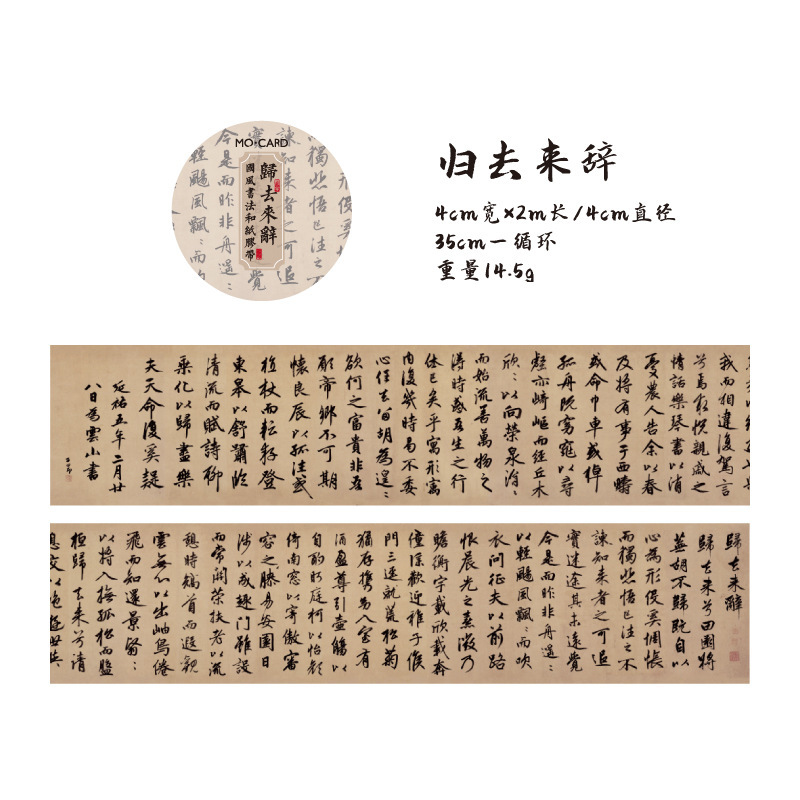 MO·CARD
歸去來辭
國風書法和紙膠帶
諫知來者之可追
今是而昨非舟遥：
归去来辞
4cm宽×2m长/4cm直径
35cm一循环
重量14.5g
我而相違復駕言
兮焉求悅親戚之
情話樂琴書以消
憂農人告余以春
及將有事于西疇
或命巾車或棹
孤舟既窈窕以尋
壑亦崎嶇而經丘木
欣：以向榮泉涓：
而始流善萬物之
得時感吾生之行
休已矣乎寓形寓
內復幾時曷不委
心任去留胡為遑：
欲何之富貴非吾
願帝鄉不可期
懷良辰以孤往或
植杖而耘耔登
東皋以舒嘯臨
清流而賦詩聊
乘化以歸盡樂
夫天命復奚疑
延祐五年二月廿
八日為雲小書
歸去來辭
歸去來兮田園將
蕪胡不歸既自以
心為形役奚惆悵
而獨悲悟已往之不
諫知來者之可追
實迷途其未遠覺
今是而昨非舟遥：
以輕颺風飄：而吹
衣問征夫以前路
恨晨光之熹微乃
瞻衡宇載欣載奔
僮僕歡迎稚子候
門三逕就荒松菊
猶存攜幼入室有
酒盈尊引壺觴以
自酌眄庭柯以怡顏
倚南窗以寄傲審
容之膝易安園日
涉以成趣門雖設
而常關策扶老以流
憩時矯首而遐觀
雲無心以出岫鳥倦
飛而知還景翳：
以將入撫孤松而盤
桓歸去來兮請
息交以絕遊世與